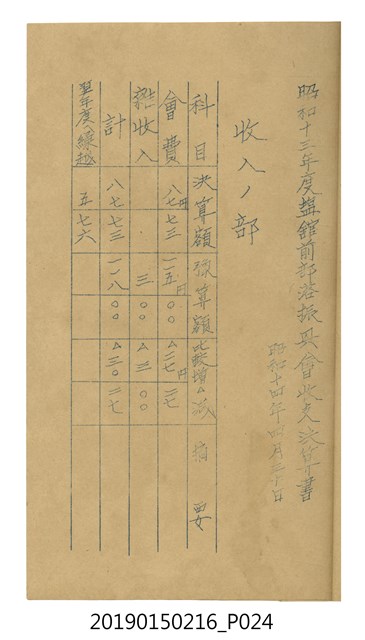 昭和十三年度塩館前部落振興會收支決算書
昭和十四年四月三十日
收入ノ部
科目 決算額 預算額 比較増△減 摘要
會費 八七円七三 一一五円〇〇 △二七円二七
雜收入 三〇〇 △三〇〇
計 八七七三 一一八〇〇 △三〇二七
翌年度へ繰越 五七六
20190150216_P024